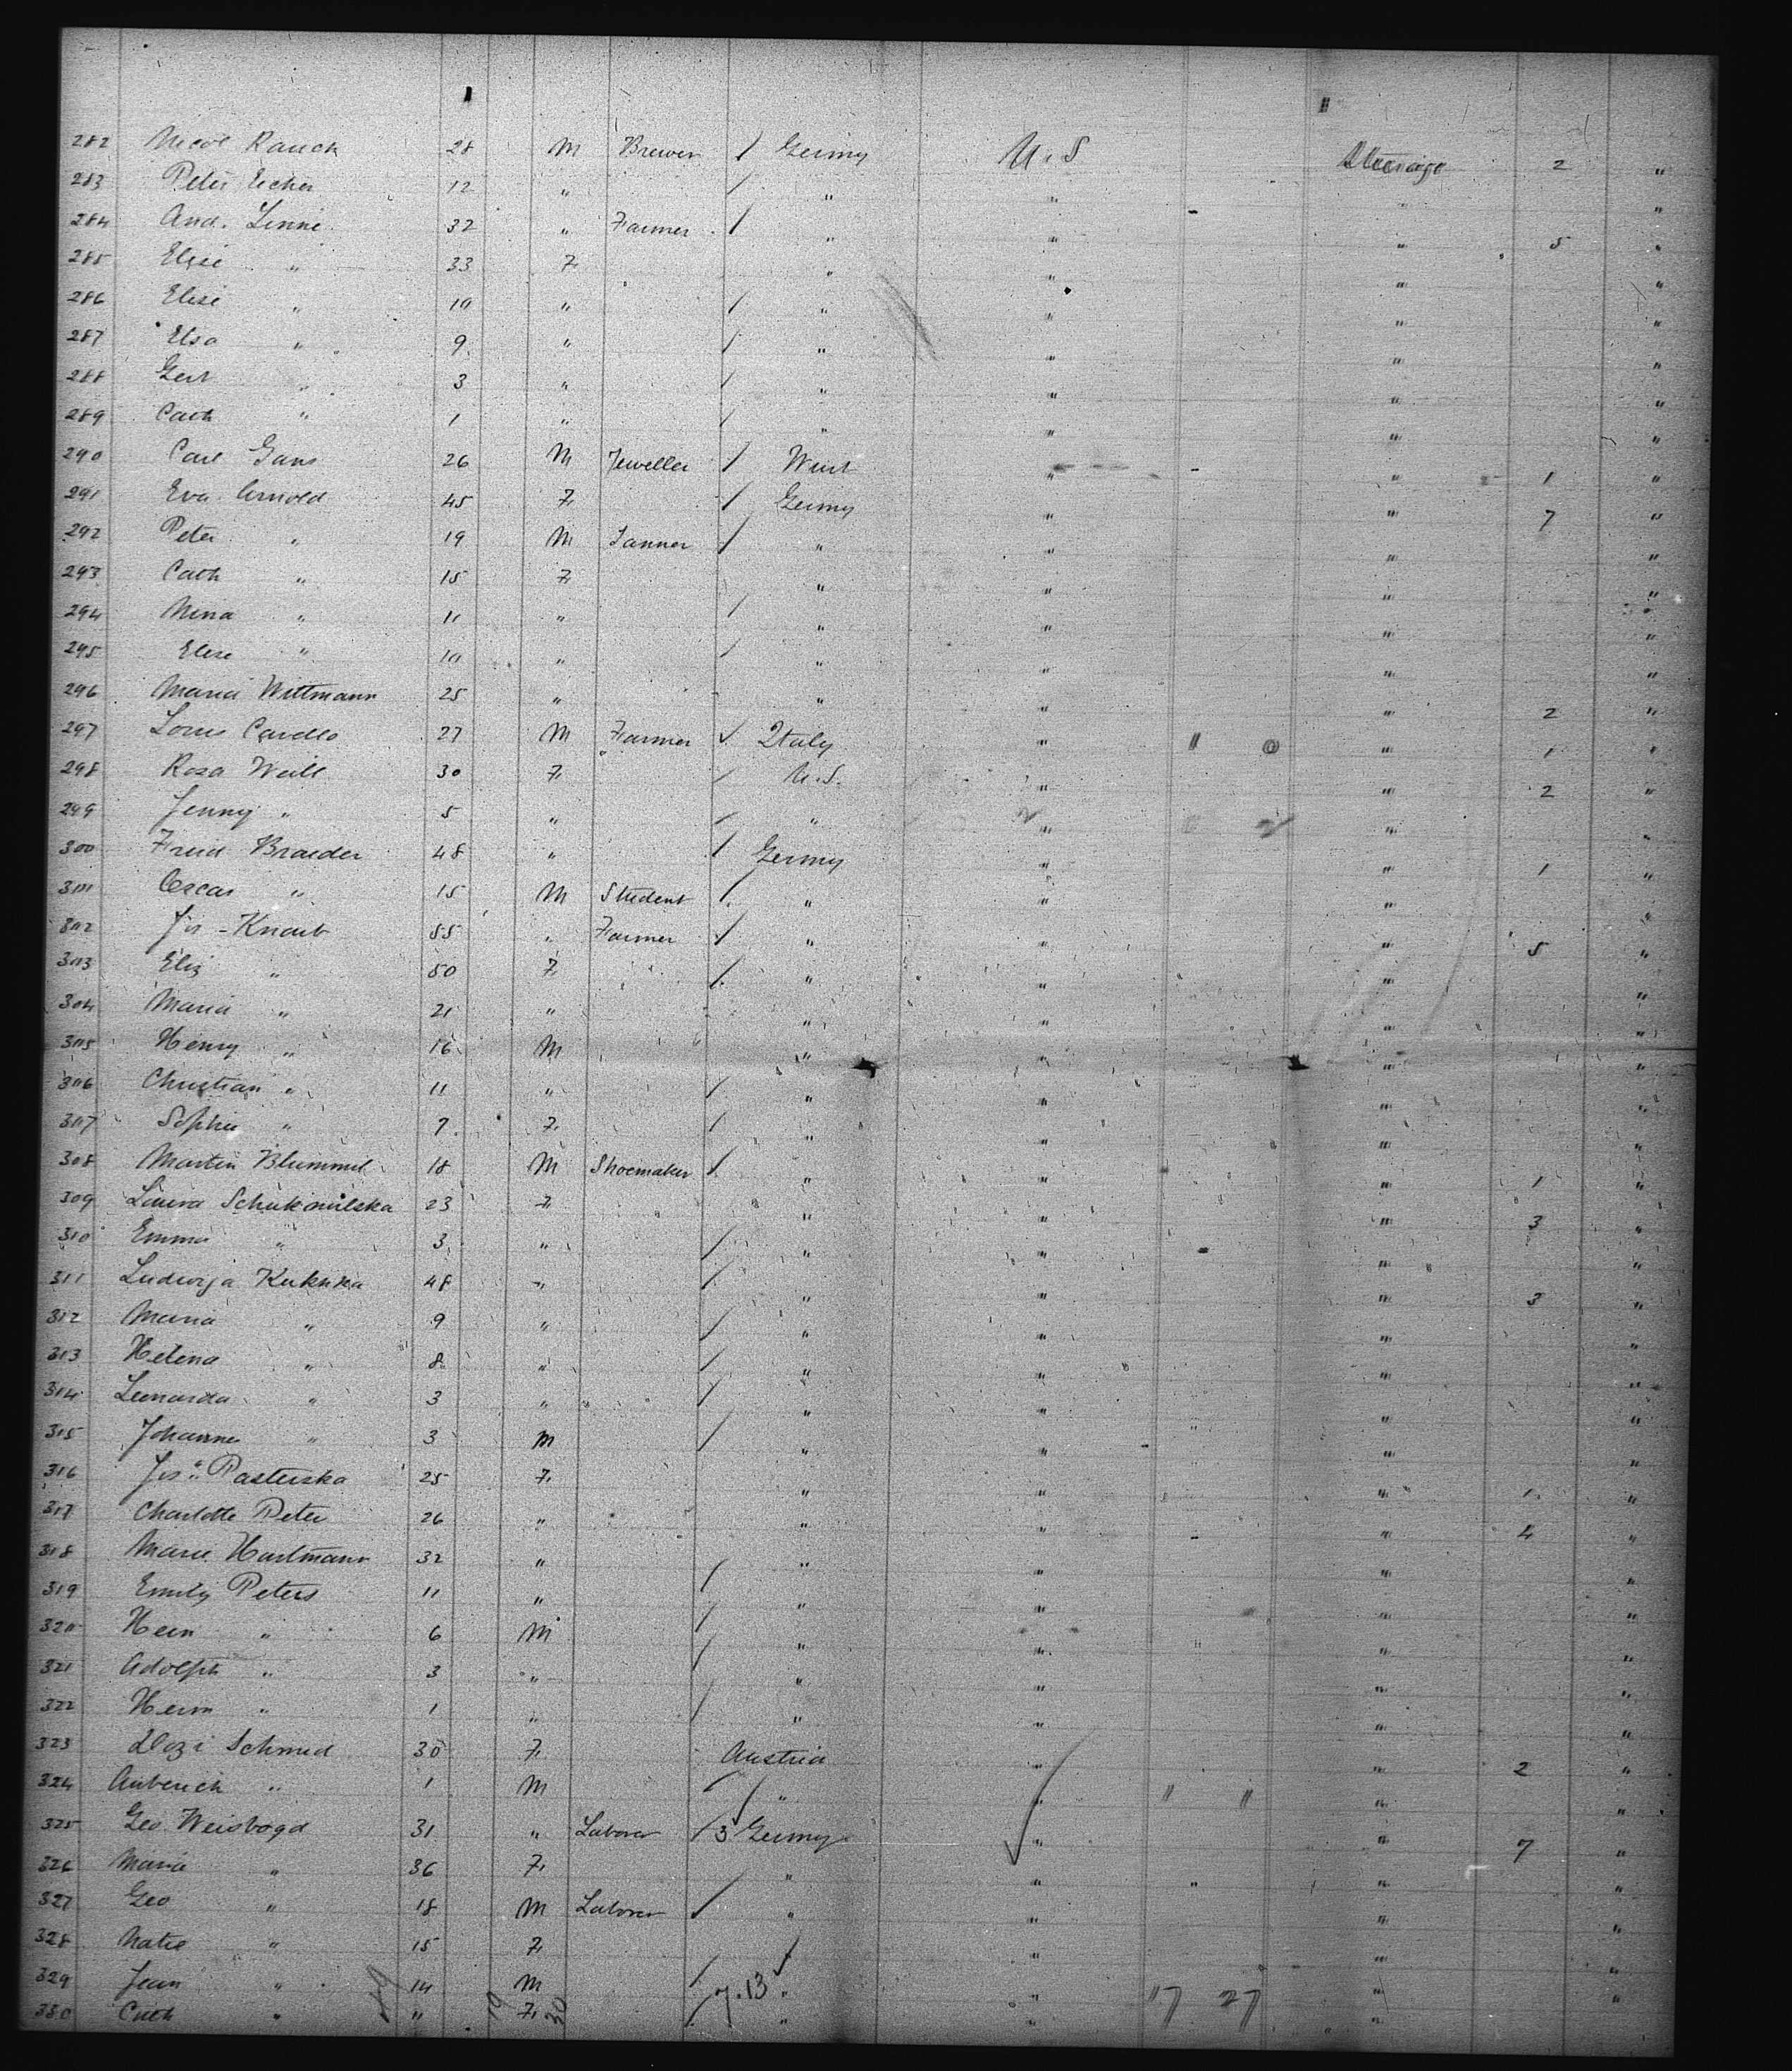 282 Nicol Rauch 28 M Brewer / Germy U.S Steerage 2 "
283 Peter Eicher 12 " / " " " "
284 And. Linné 32 " Farmer / " " " 5 "
285 Elise " 33 F " " " "
286 Elise " 10 " / " " " "
287 Elsa " 9 " / " " " "
288 Gert " 3 " / " " " "
289 Cath " 1 " / " " " "
290 Carl Gans 26 M Jeweller / Wurt " " 1 "
291 Eva Arnold 45 F / Germy " " 7 "
292 Peter " 19 M Tanner / " " " "
293 Cath " 15 F " " " "
294 Nina " 11 " / " " " "
295 Elise " 10 " / " " " "
296 Maria Wittmann 25 " " " " 2 "
297 Louis Cardlo 27 M Farmer / Italy " " 0 " 1 "
298 Rosa Weill 30 F / U.S. " " 2 "
299 Jenny " 5 " / " " " "
300 Fried Braeder 48 " / Germy " " 1 "
301 Oscar " 15 M Student / " " " "
302 Jos - Knaub 55 " Farmer / " " " 5 "
303 Eliz " 50 F / " " " "
304 Maria " 21 " " " " "
305 Henry " 16 M " " " "
306 Christian " 11 " / " " " "
307 Sophie " 7 F / " " " "
308 Martin Blummel 18 M Shoemaker / " " " 1 "
309 Laura Schukowilska 23 F " " " 3 "
310 Emma " 3 " / " " " "
311 Ludwiga Kukuka 48 " / " " " 3 "
312 Maria " 9 " / " " " "
313 Helena " 8 " / " " " "
314 Leonarda " 3 " / " " " "
315 Johannes " 3 M / " " " "
316 Jos. Pasterska 25 F " " " 1 "
317 Charlotte Peter 26 " " " " 4 "
318 Marie Hartmann 32 " / " " " "
319 Emily Peters 11 " / " " " "
320 Hein " 6 M / " " " "
321 Adolph " 3 " / " " " "
322 Herm " 1 " / " " " "
323 Schmid 30 F Austria " " 2 "
324 " 1 M / " " " " " "
325 Geo. Weisbogd 31 " Laborer / 3 Germy " " 7 "
326 Marie " 36 F " " " " "
327 Geo " 18 M Laborer / " " " "
328 Katie " 15 F " " " "
329 Jean " 14 M / " " " "
330 Cath " " F / 7.13 " " 17 27 " "